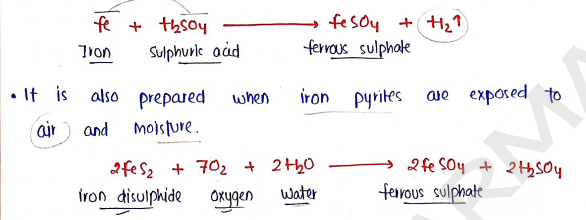 Fe + H₂SO₄ ⟶ FeSO₄ + H₂↑
Iron Sulphuric acid ferrous sulphate
• It is also prepared when iron pyrites are exposed to
air and moisture.
2FeS₂ + 7O₂ + 2H₂O ⟶ 2FeSO₄ + 2H₂SO₄
iron disulphide oxygen water ferrous sulphate